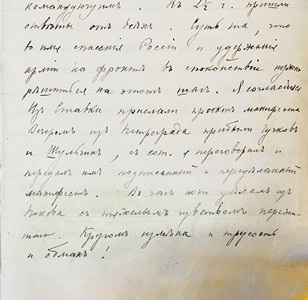 командующим К 2½ ч. пришли
ответы от всех. Суть та, что
во имя спасения России и удержания
армии на фронте в спокойствии нужно
решиться на этот шаг. Я согласился
Из Ставки прислали проект манифеста
Вечером из Петрограда прибыли Гучков
и Шульгин, с кот. я переговорил и
передал им подписанный и переделанный
манифест. В час ночи уехал из
Пскова с тяжелым чувством пережи-
того. Кругом измена и трусость
и обман!